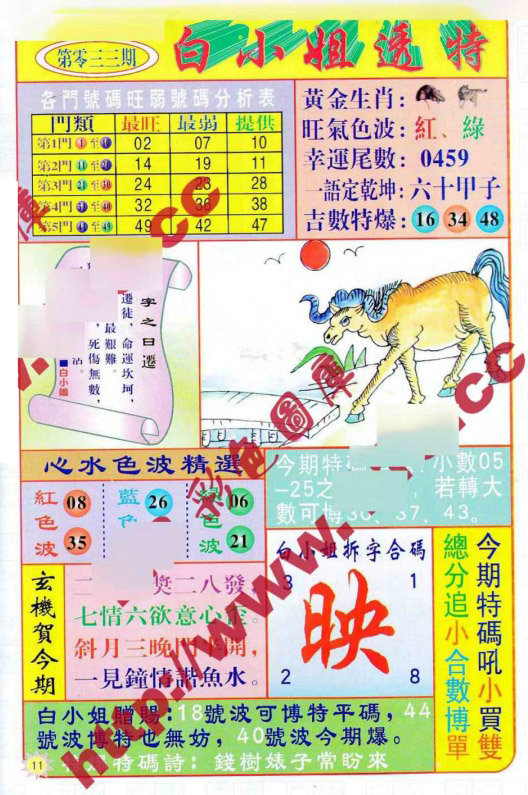 第零三三期
白小姐透特
各門號碼旺弱號碼分析表
門類 最旺 最弱 提供
第1門 1 至 02 07 10
第2門 至 14 19 11
第3門 至 30 24 23 28
第4門 至 40 32 36 38
第5門 至 49 49 42 47
黃金生肖:
旺氣色波: 紅、綠
幸運尾數: 0459
一語定乾坤: 六十甲子
吉數特爆: 16 34 48
字之曰遷
遷徒,命運坎坷,
最艱難。
,死傷無數,
白小姐
心水色波精選
紅色波 08 35
藍 26
色波 06 21
今期特 小數05
-25之 ,若轉大
數可 37、43。
玄機賀今期
二 獎二八發
七情六欲意心歪。
斜月三晚門 開,
一見鐘情諧魚水。
白小姐拆字合碼
3 1
映
2 8
今期特碼吼小買雙
總分追小合數博單
白小姐贈賜:18號波可博特平碼,44
號波博特也無妨,40號波今期爆。
特碼詩: 錢樹婊子常盼來
11
彩色圖庫
http://www. .cc